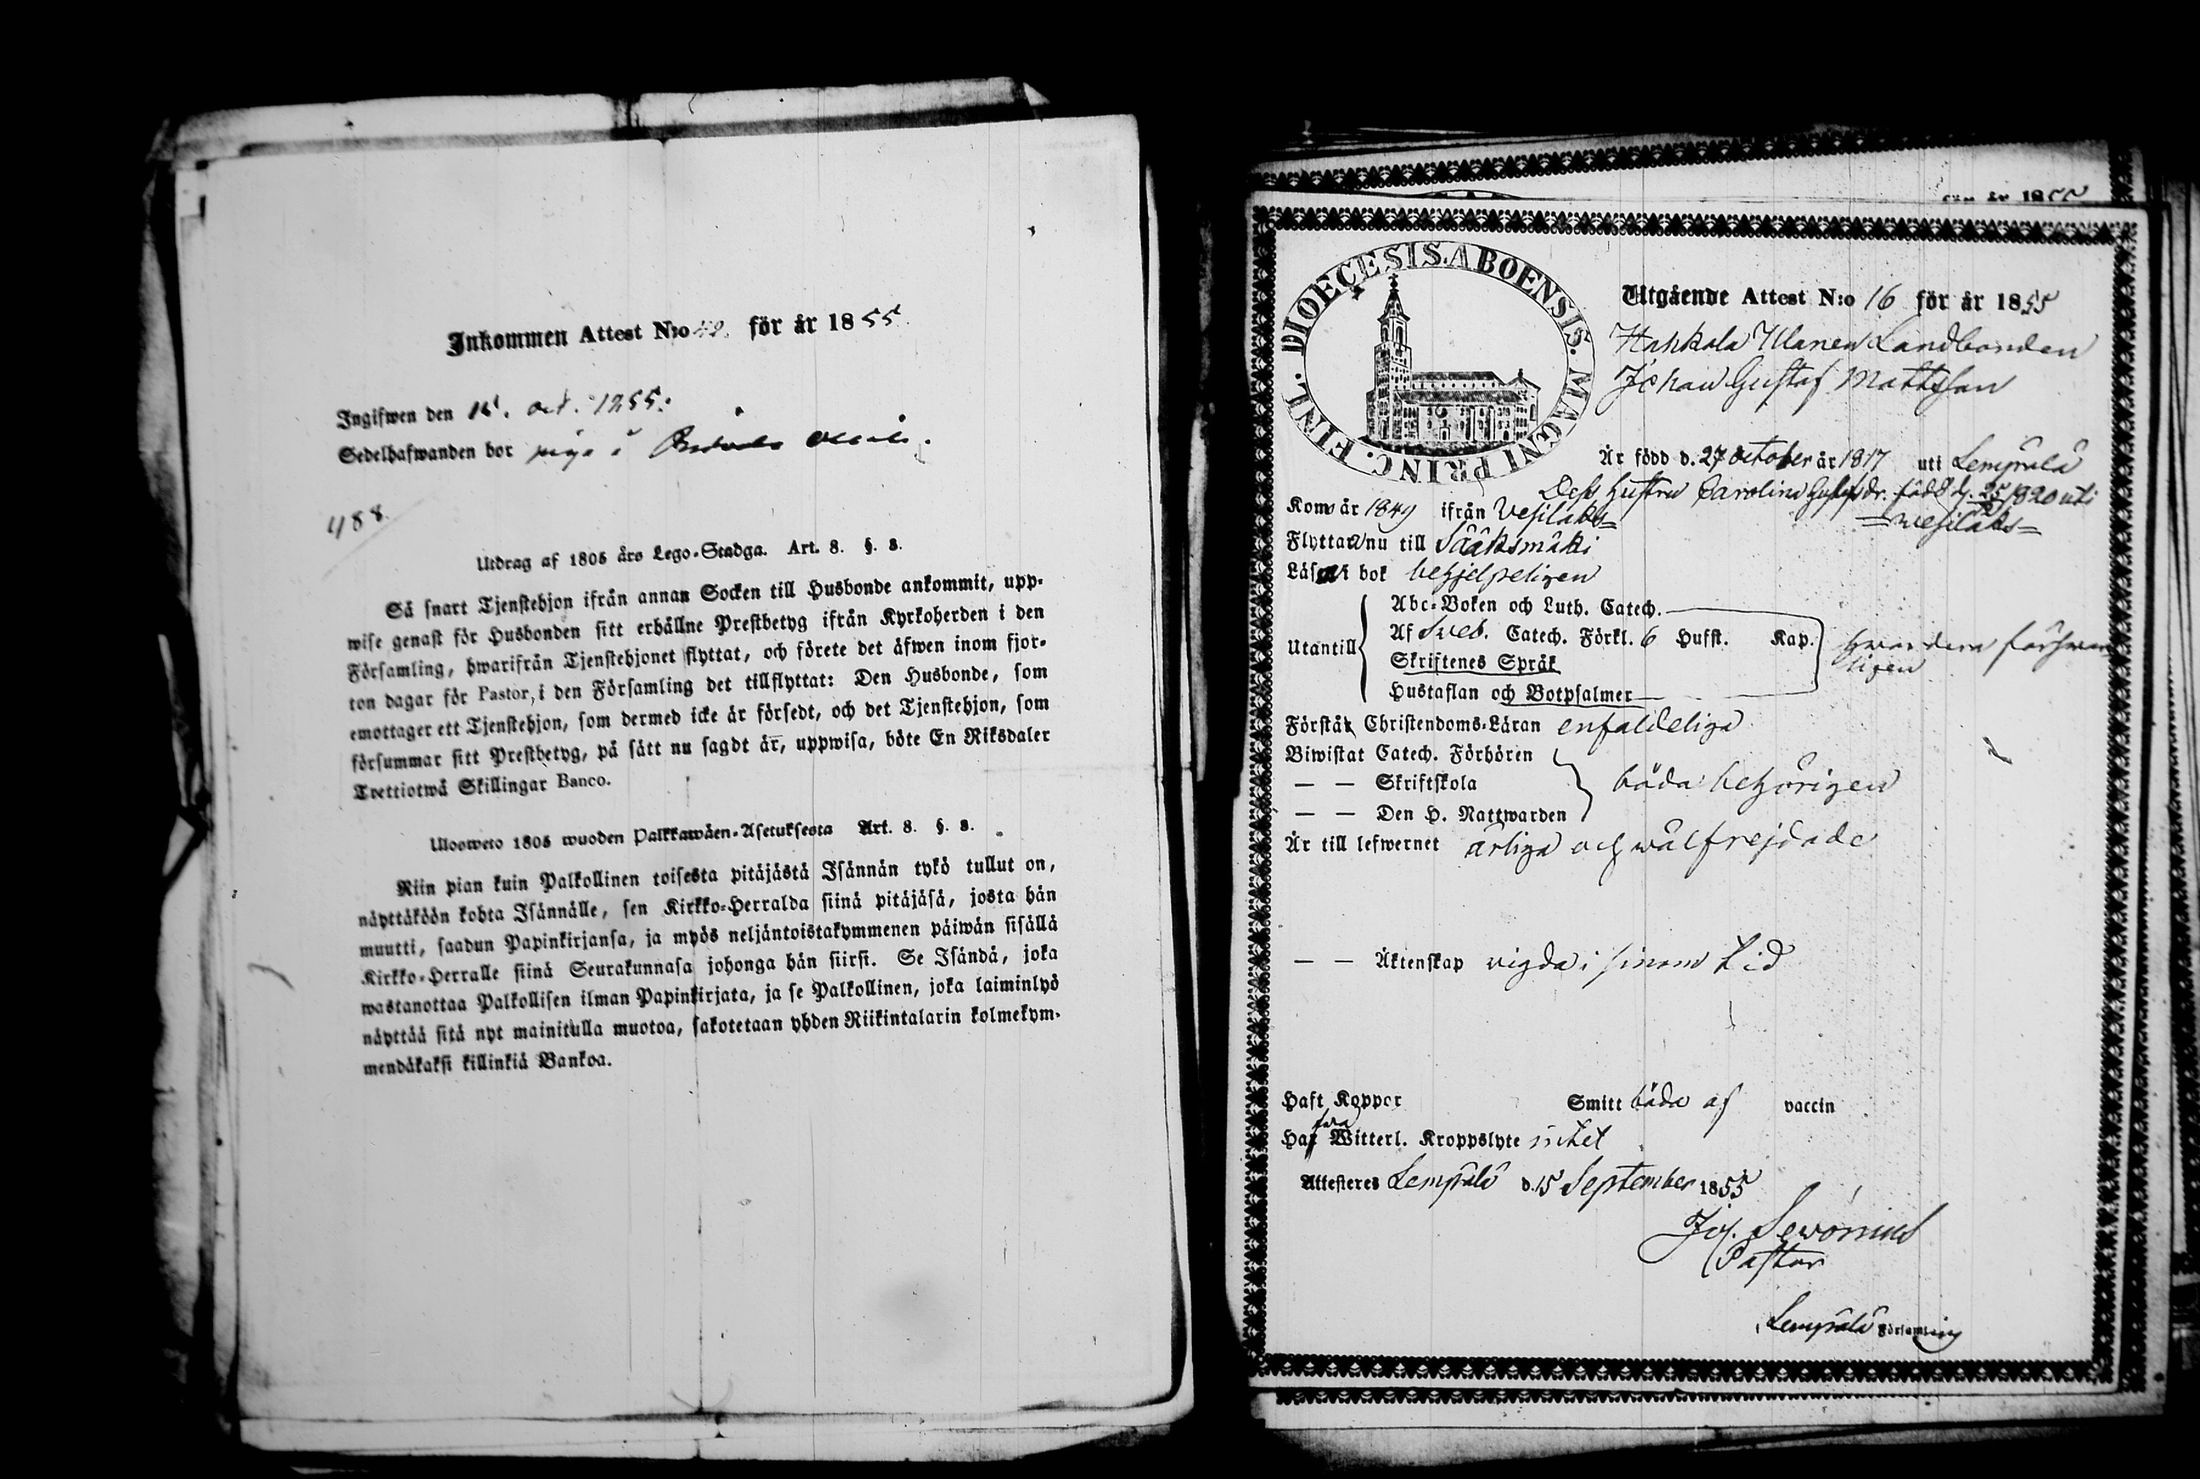 Inkommen Attest N:o för år 1855.
Ingifwen den 15. oct. 1855.
Sedelhafwanden bor piga i
488.
Utdrag af 1805 års Lego-Stadga. Art. 8. §. 8.
Så snart Tjenstehjon ifrån annan Socken till Husbonde ankommit, upp-
wise genast för Husbonden sitt erhållne Prestbetyg ifrån Kyrkoherden i den
Församling, hwarifrån Tjenstehjonet flyttat, och förete det äfwen inom fjor-
ton dagar för Pastor, i den Församling det tillflyttat: Den Husbonde, som
emottager ett Tjenstehjon, som dermed icke är försedt, och det Tjenstehjon, som
försummar sitt Prestbetyg, på sätt nu sagdt är, uppwisa, böte En Riksdaler
Trettiotwå Skillingar Banco.
Ulosweto 1805 wuoden Palkkawäen-Asetuksesta Art. 8. §. 8.
Niin pian kuin Palkollinen toisesta pitäjästä Isännän tykö tullut on,
näyttäköön kohta Isännälle, sen Kirkko-Herralda siinä pitäjäsä, josta hän
muutti, saadun Papinkirjansa, ja myös neljäntoistakymmenen päiwän sisällä
Kirkko-Herralle siinä Seurakunnasa johonga hän siirsi. Se Isändä, joka
wastanottaa Palkollisen ilman Papinkirjata, ja se Palkollinen, joka laiminlyö
näyttää sitä nyt mainitulla muotoa, sakotetaan yhden Riikintalarin kolmekym-
mendäkaksi killinkiä Bankoa.
för år 1855
DIOECESIS. ABOENSIS. MAGNI PRINC. FINL.
Utgående Attest N:o 16 för år 1855
Hahkala Landbonden
Johan Gustaf Mattsson
Är född d. 27 October år 1817 uti Lempälä
Dess hustru Carolina Gustafsdr. född d. 1820 uti
=Vesilaks=
Kom år 1849 ifrån Vesilaks=
Flyttar nu till Sääksmäki
Läser i bok behjelpeligen
Abc-Boken och Luth. Catech.
Utantill Af Sveb. Catech. Förkl. 6 Hufst. Kap.
Skriftenes Språk
Hustaflan och Botpsalmer
Förstår Christendoms-Läran enfaldeliga
Biwistat Catech. Förhören
— — Skriftskola båda behörigen
— — Den H. Nattwarden
Är till lefwernet ärliga och wälfrejdade
— — Äktenskap vigda i sinom tid
Haft Koppor Smitt båda af vaccin
Har Witterl. Kroppslyte intet
Attesteres Lempälä d. 15 September 1855
Joh. Sevonius
Pastor
Lempälä Församling